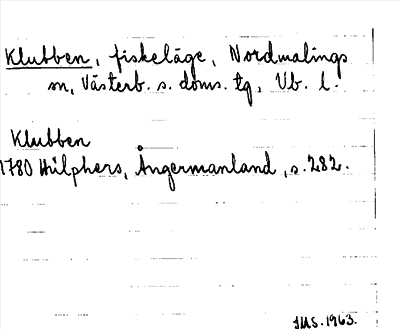 Klubben, fiskeläge, Nordmalings
sn, Västerb. s. doms. tg, Vb. l.
Klubben
1780 Hülphers, Ångermanland, s. 282.
IMS. 1963.